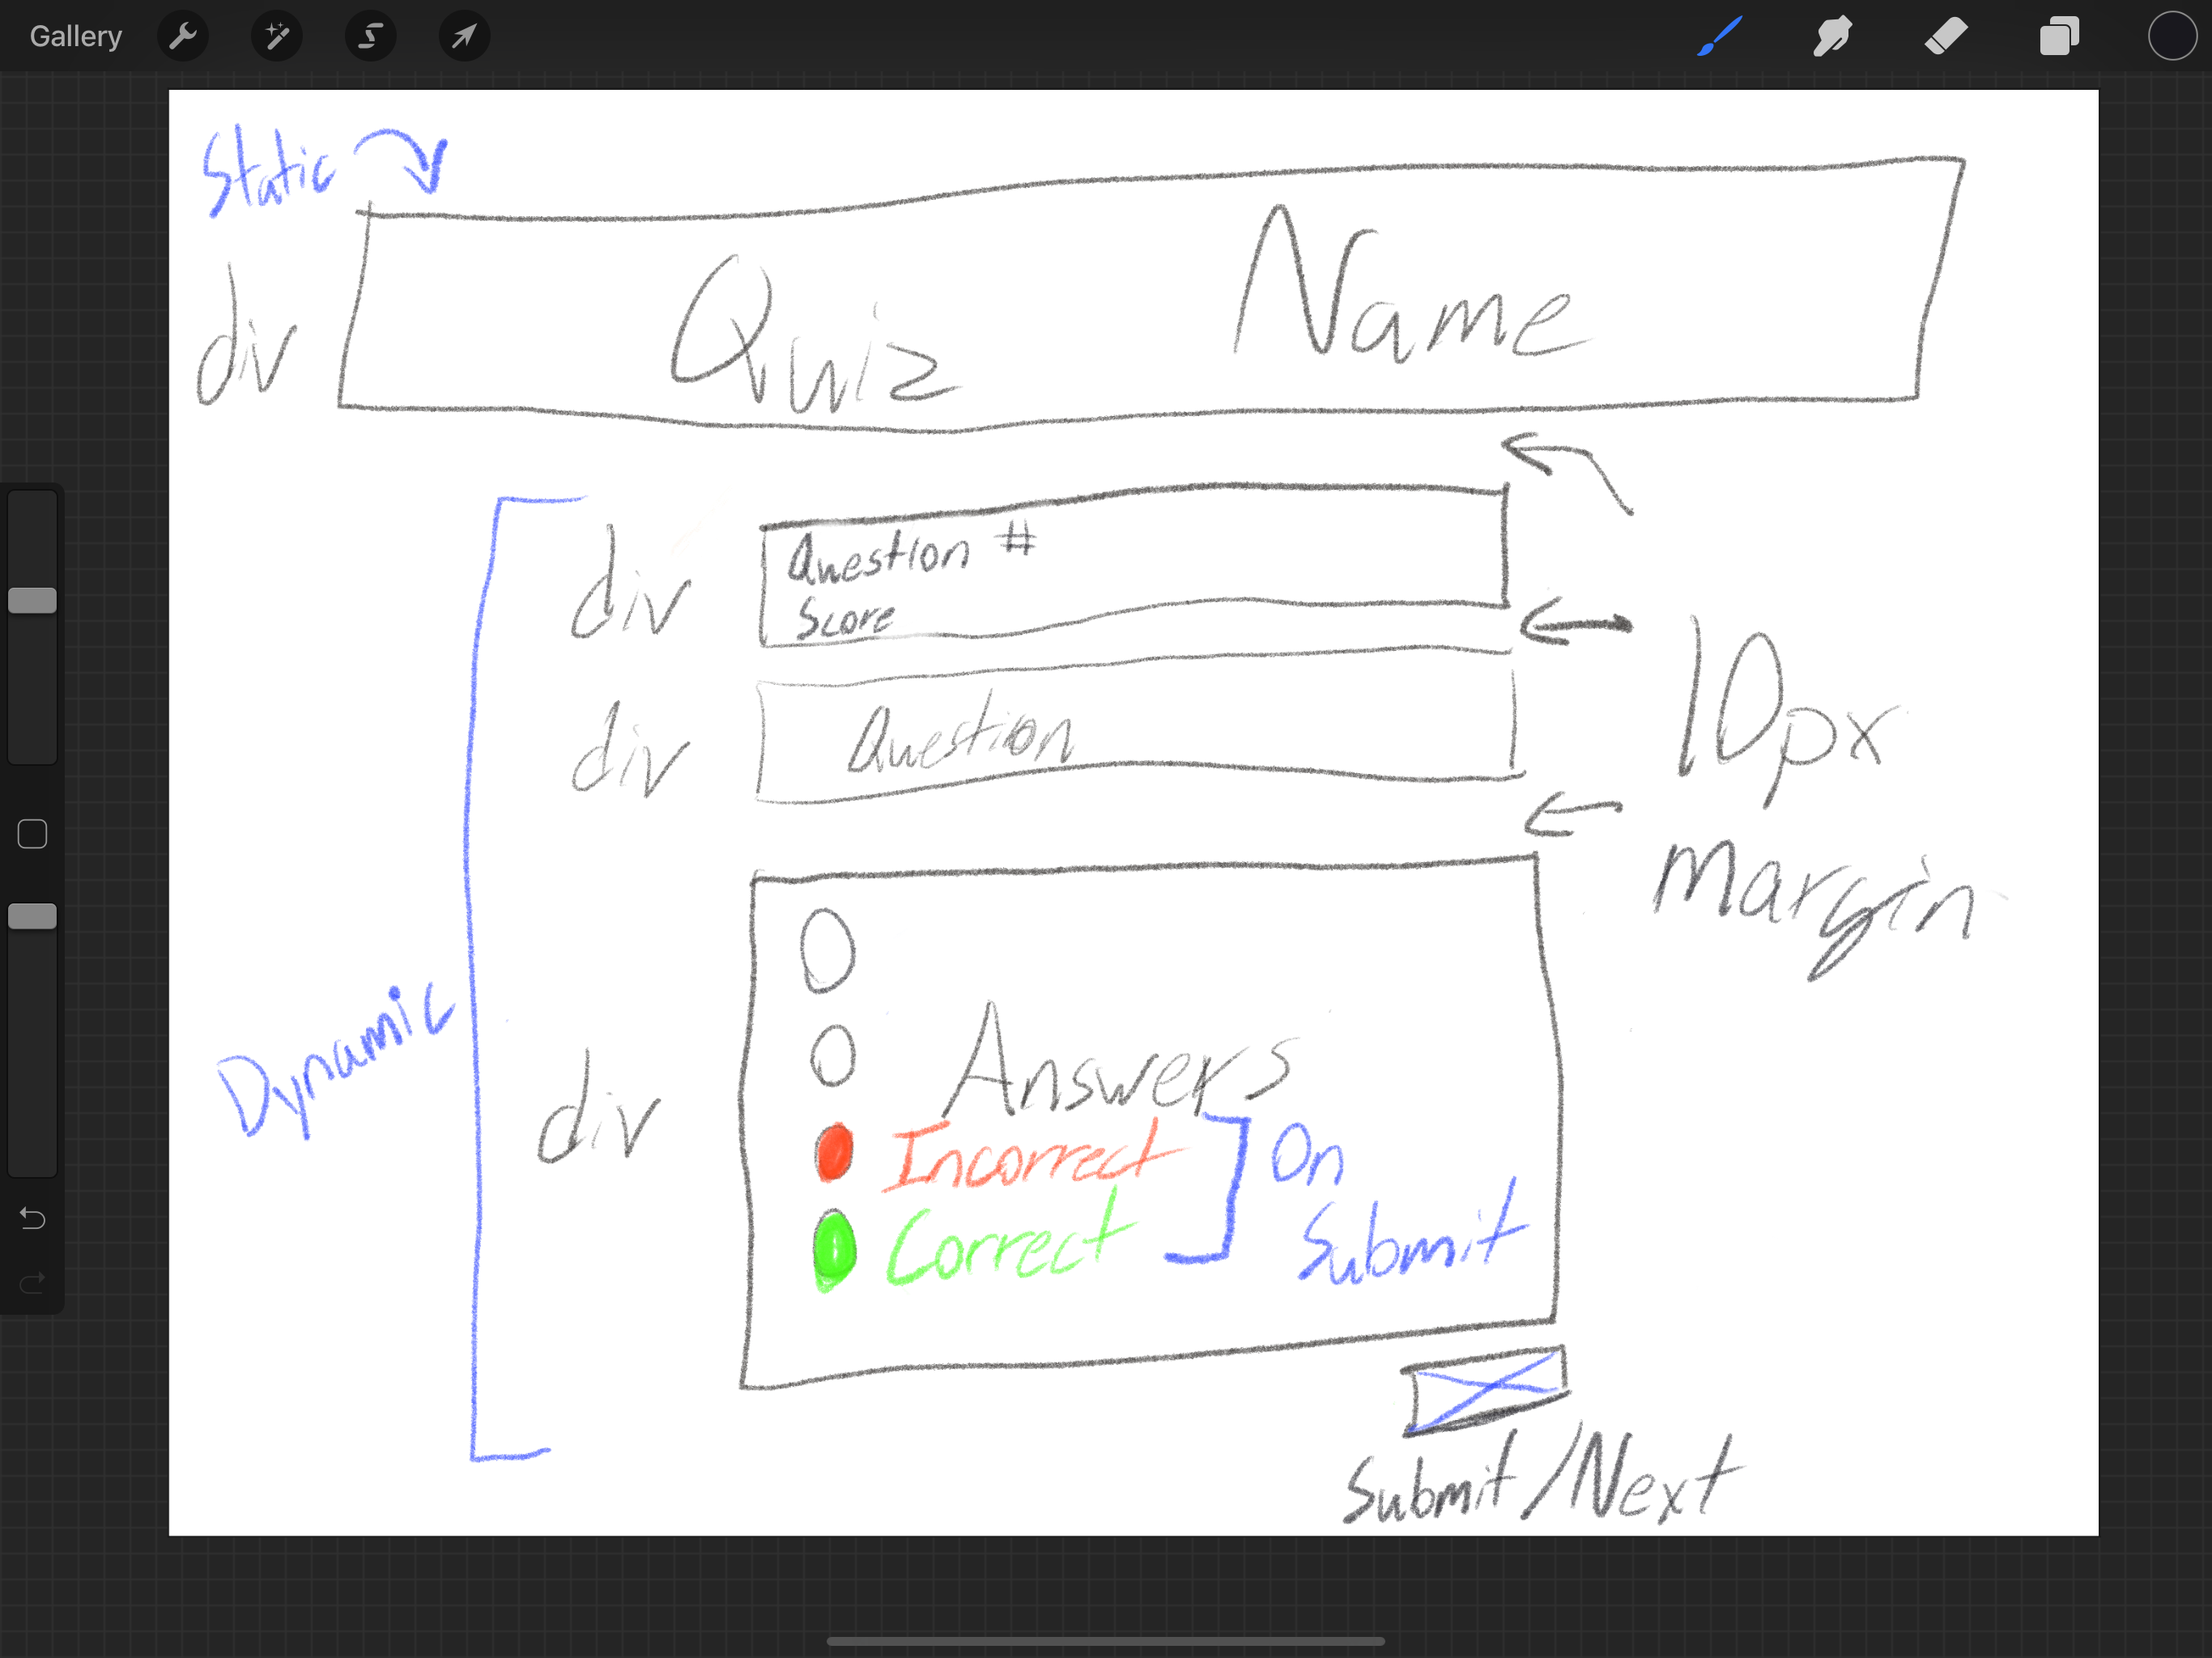 Gallery
Static
div
Quiz Name
div
Question #
Score
div
Question
10px
margin
Dynamic
div
Answers
Incorrect
Correct
On
Submit
Submit/Next